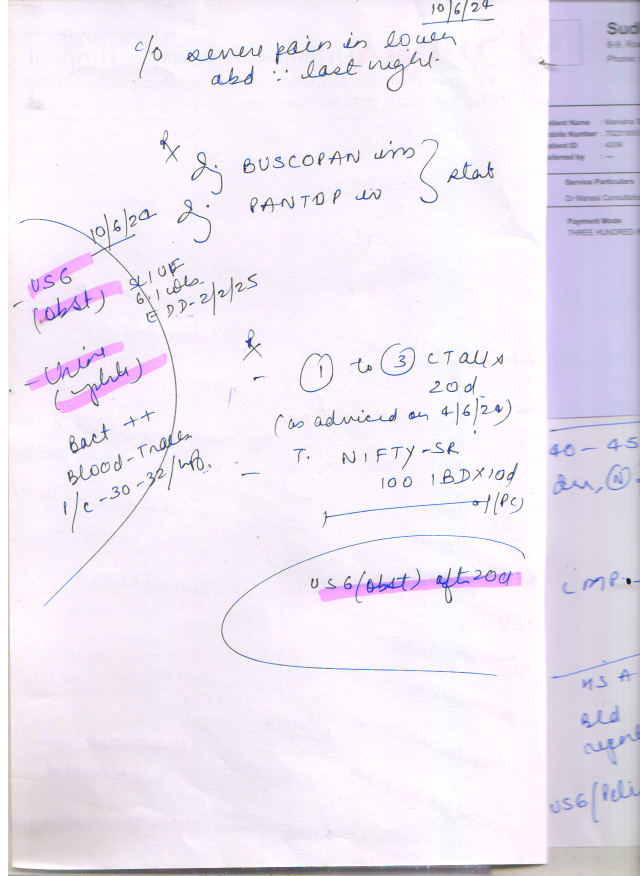 10/6/24
c/o severe pain in lower
abd ∵ last night.
Rx
Inj BUSCOPAN im
Inj PANTOP iv } stat
10/6/24
- USG
(obst)
SLIUF
6.1 wks
EDD-2/2/25
- Urine
Bact ++
Blood-Traces
P/c-30-32/hpf.
Rx
- ① to ③ CT all x
20d
(as adviced on 4/6/24)
- T. NIFTY-SR
100 1BD x 10d
(PC)
USG (obst) after 20d
Sudh
B-9, Ro
Phone:
atient Name : Manisha S
obile Number
atient ID : 4206
eferred by : —
Service Particulars
Dr Manasi Consultatio
Payment Mode
THREE HUNDRED R
40-45
LMP.
HSA
Bld
USG/Pelvi